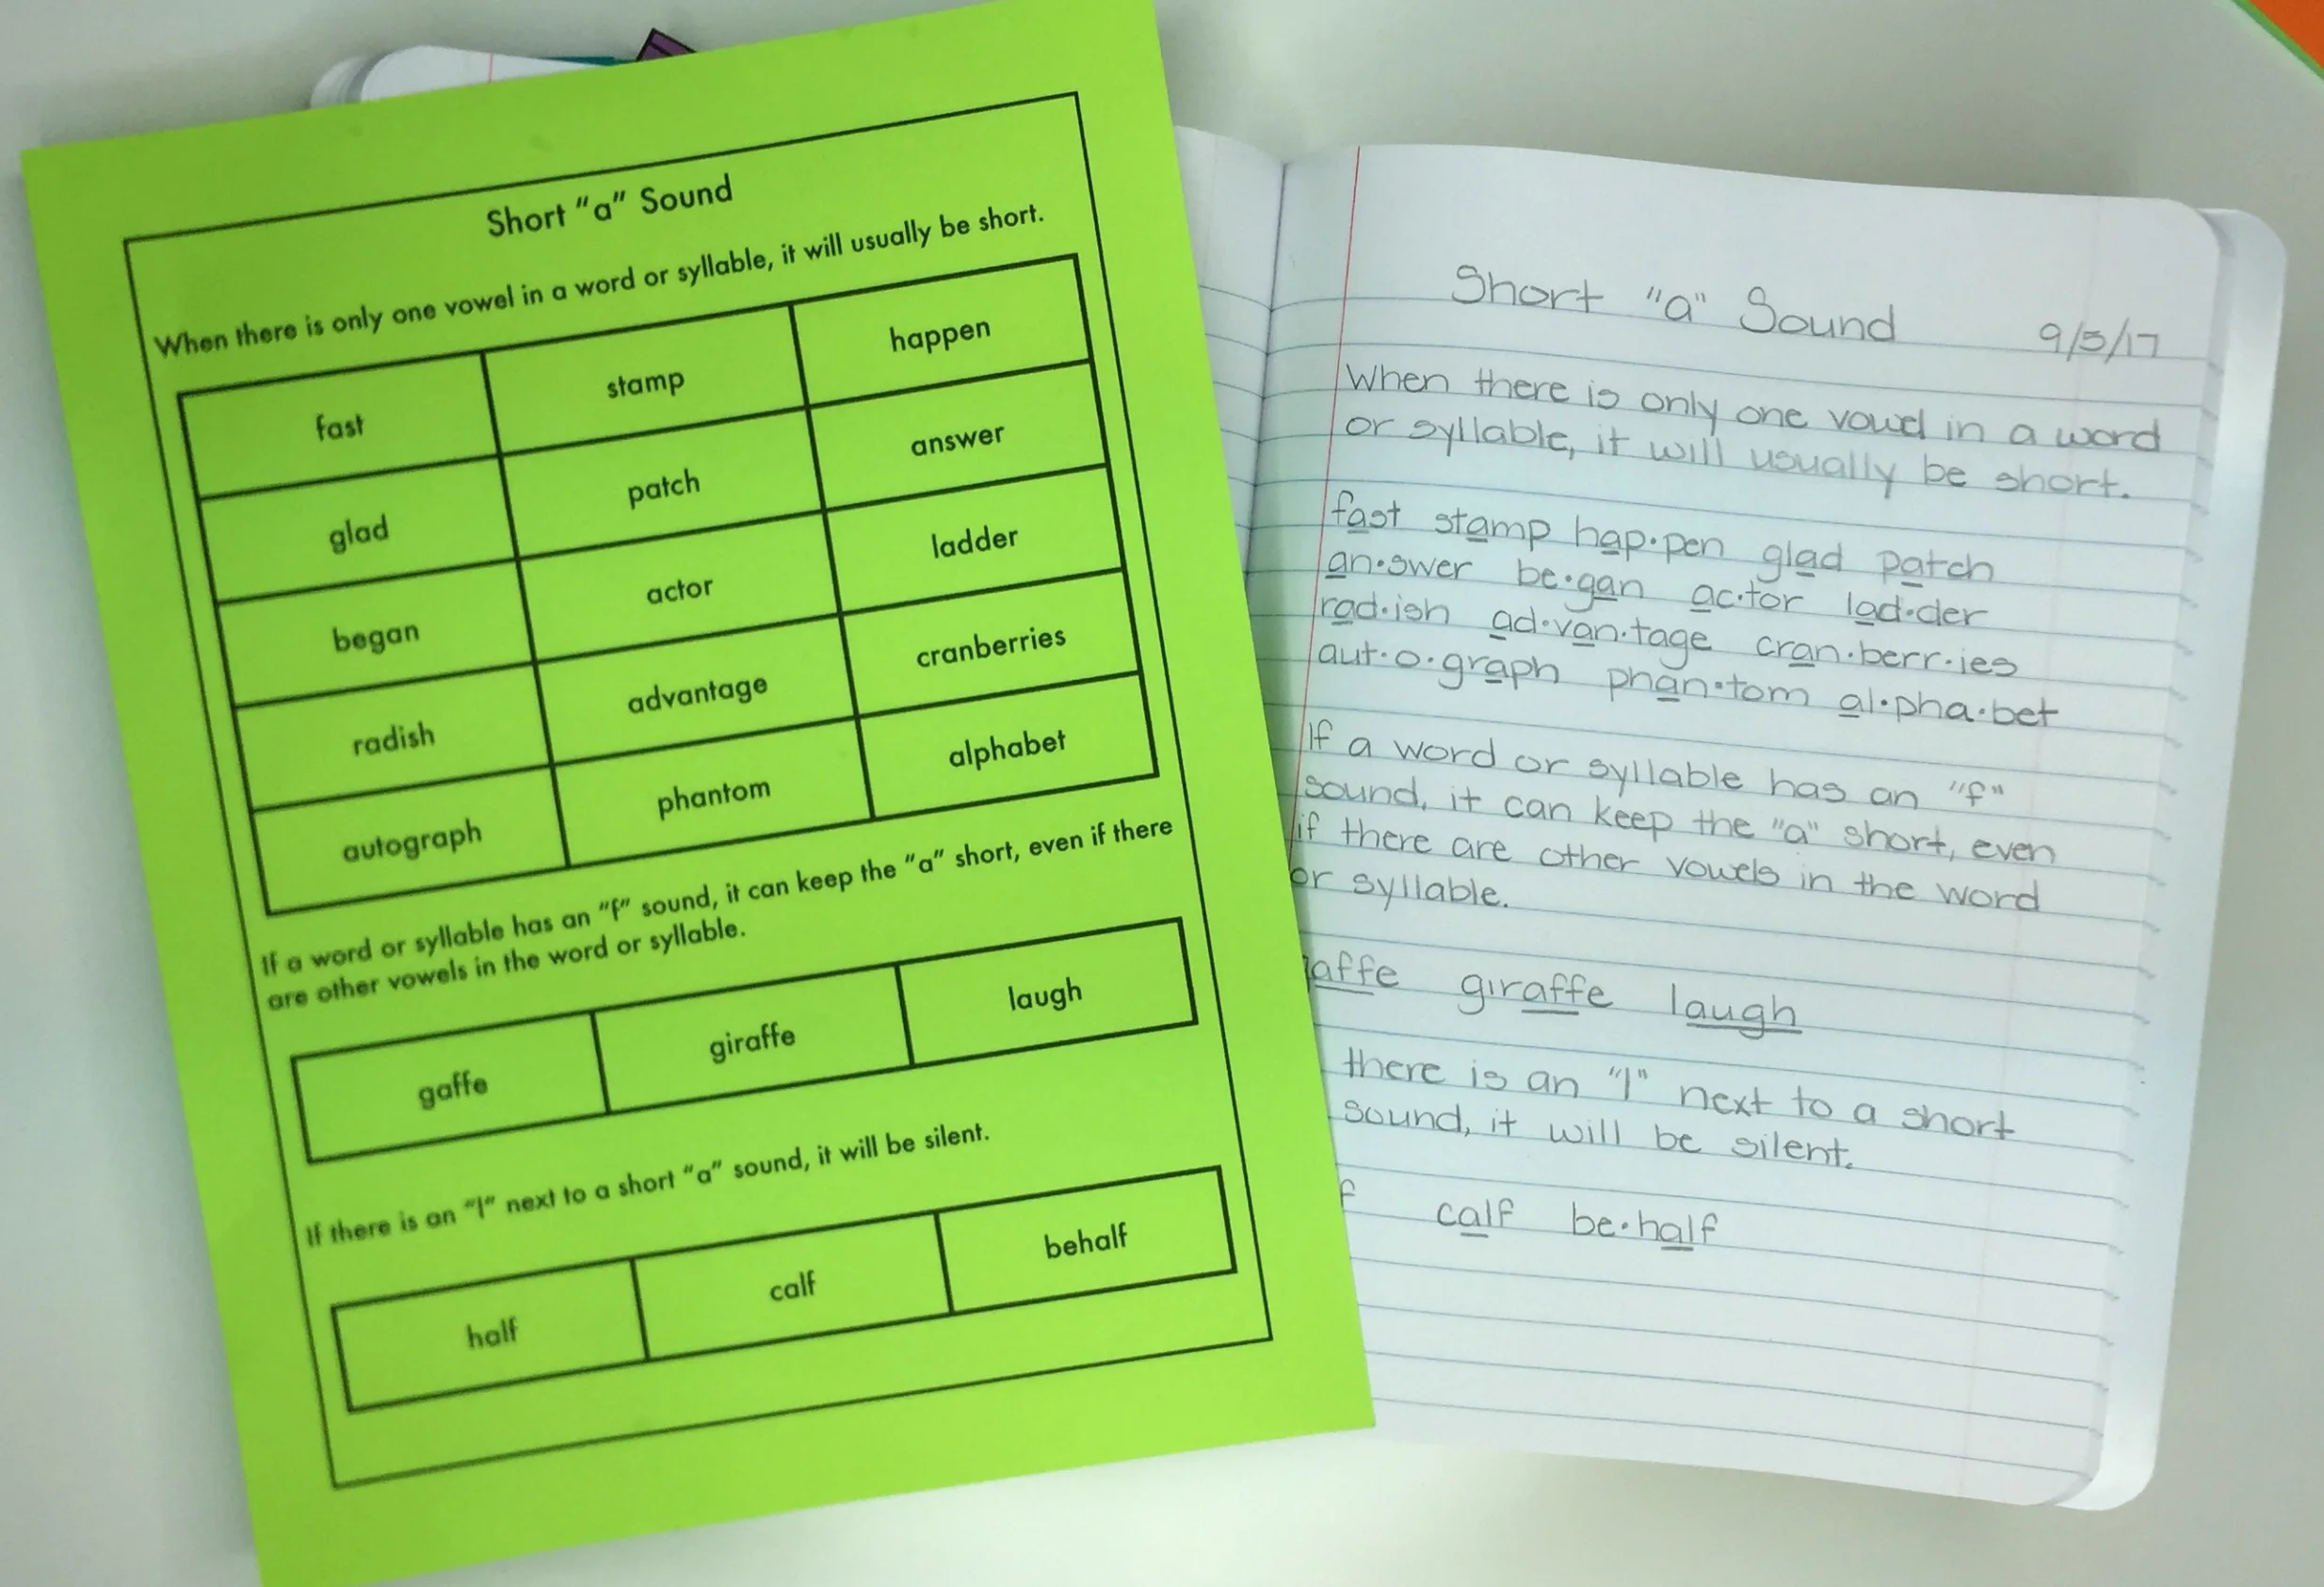 Short "a" Sound
When there is only one vowel in a word or syllable, it will usually be short.
fast stamp happen
glad patch answer
began actor ladder
radish advantage cranberries
autograph phantom alphabet
If a word or syllable has an "f" sound, it can keep the "a" short, even if there
are other vowels in the word or syllable.
gaffe giraffe laugh
If there is an "l" next to a short "a" sound, it will be silent.
half calf behalf
Short "a" Sound 9/5/17
When there is only one vowel in a word
or syllable, it will usually be short.
fast stamp hap·pen glad patch
an·swer be·gan ac·tor lad·der
rad·ish ad·van·tage cran·berr·ies
aut·o·graph phan·tom al·pha·bet
If a word or syllable has an "f"
sound, it can keep the "a" short, even
if there are other vowels in the word
or syllable.
affe giraffe laugh
there is an "l" next to a short
sound, it will be silent.
f calf be·half